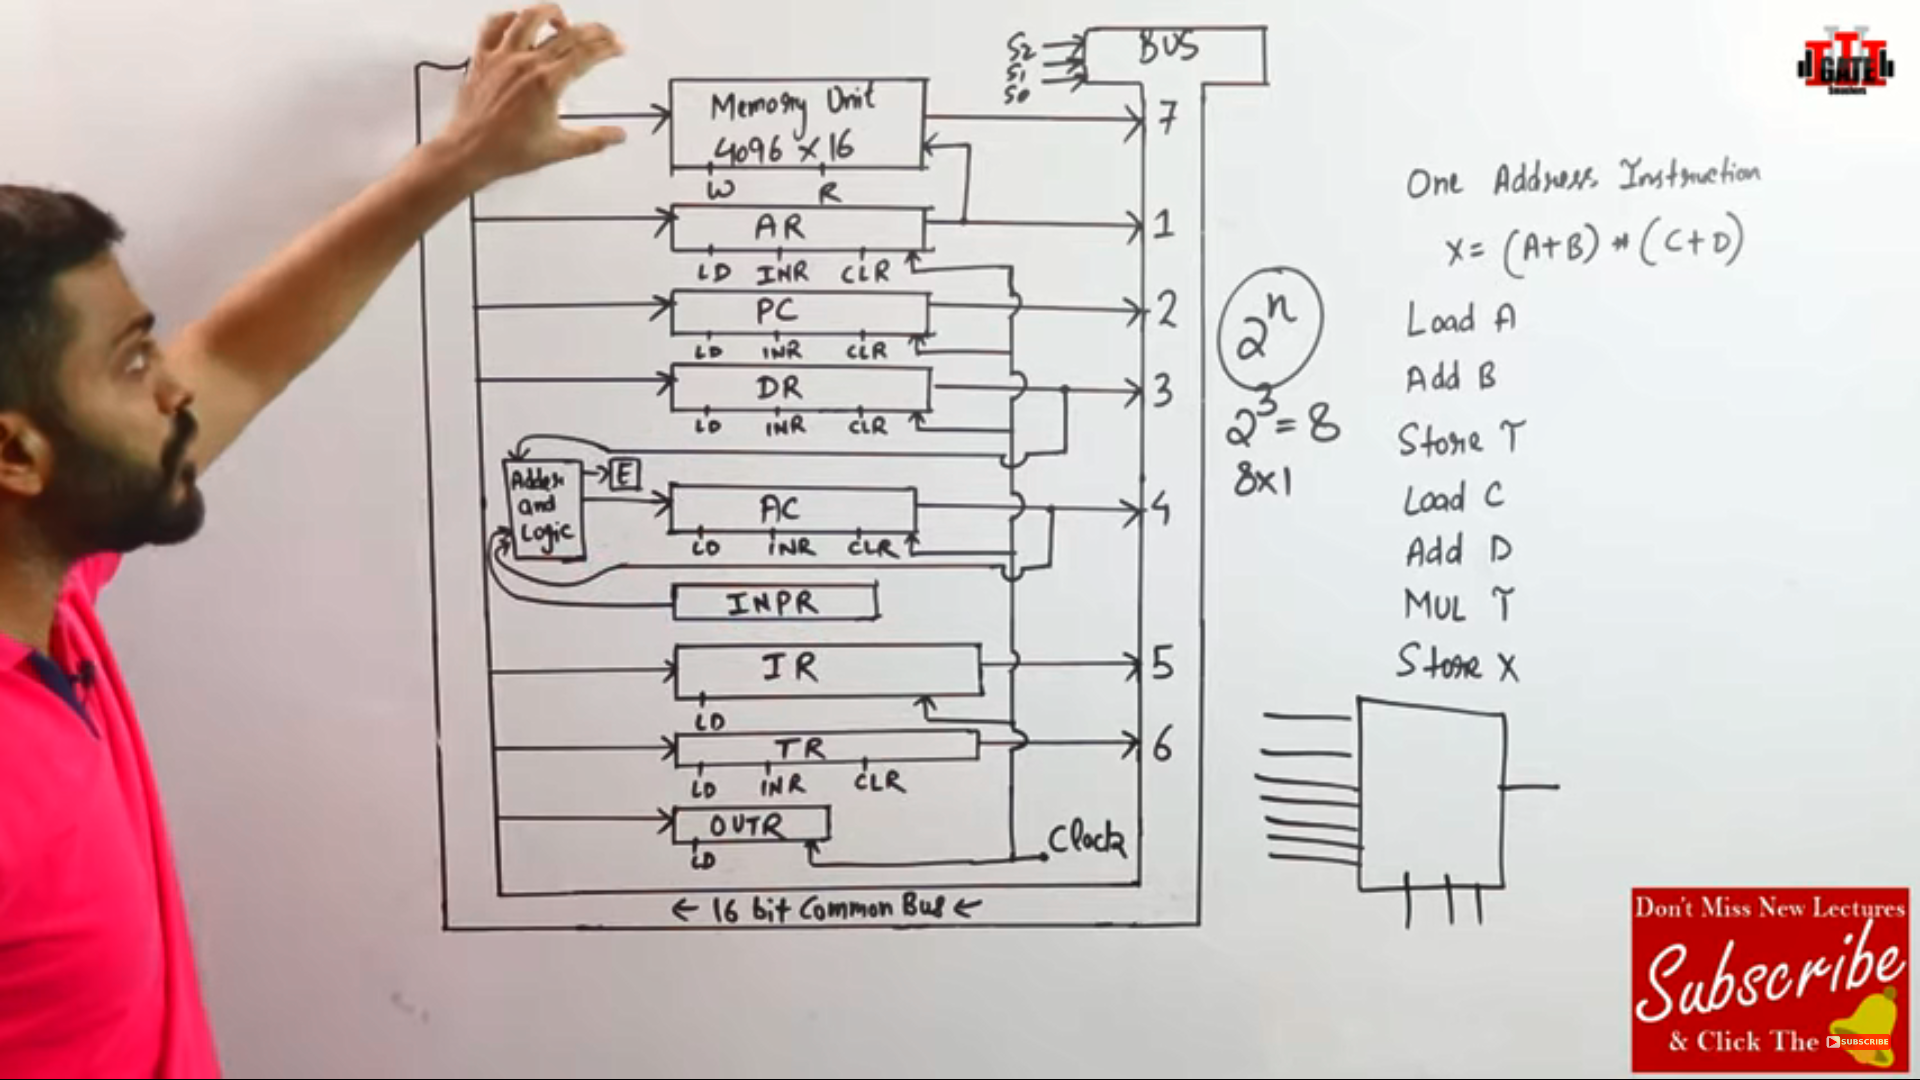 S2
S1
S0
BUS
Memory Unit
4096 × 16
W R
7
AR
1
LD INR CLR
PC
2
LD INR CLR
DR
3
LD INR CLR
Adder
and
Logic
E
AC
4
LD INR CLR
INPR
IR
5
LD
TR
6
LD INR CLR
OUTR
LD
Clock
← 16 bit Common Bus ←
2^n
2^3 = 8
8×1
One Address Instruction
X = (A+B) * (C+D)
Load A
Add B
Store T
Load C
Add D
MUL T
Store X
GATE
Smashers
Don't Miss New Lectures
Subscribe
& Click The
SUBSCRIBE